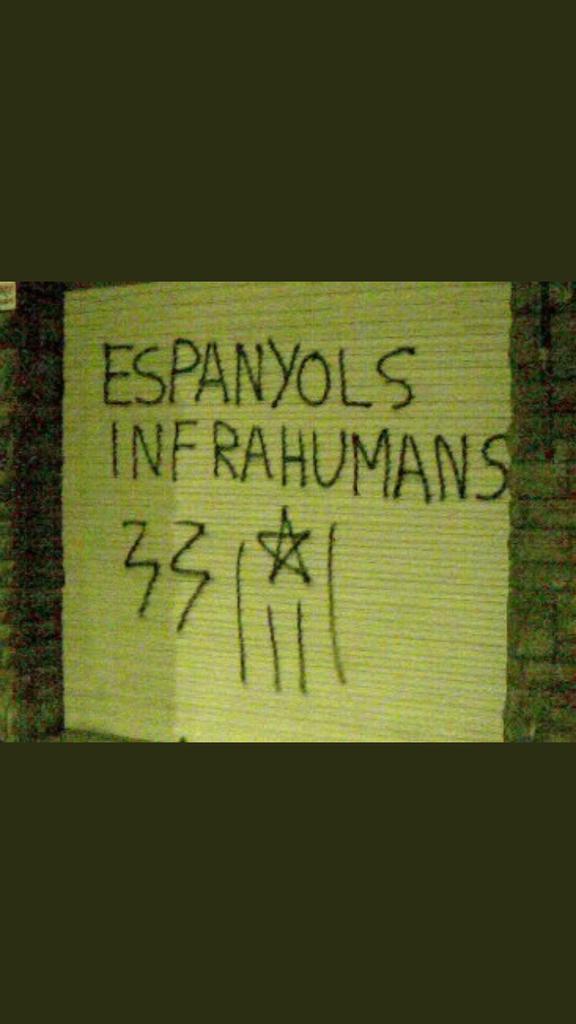 ESPANYOLS
INFRAHUMANS